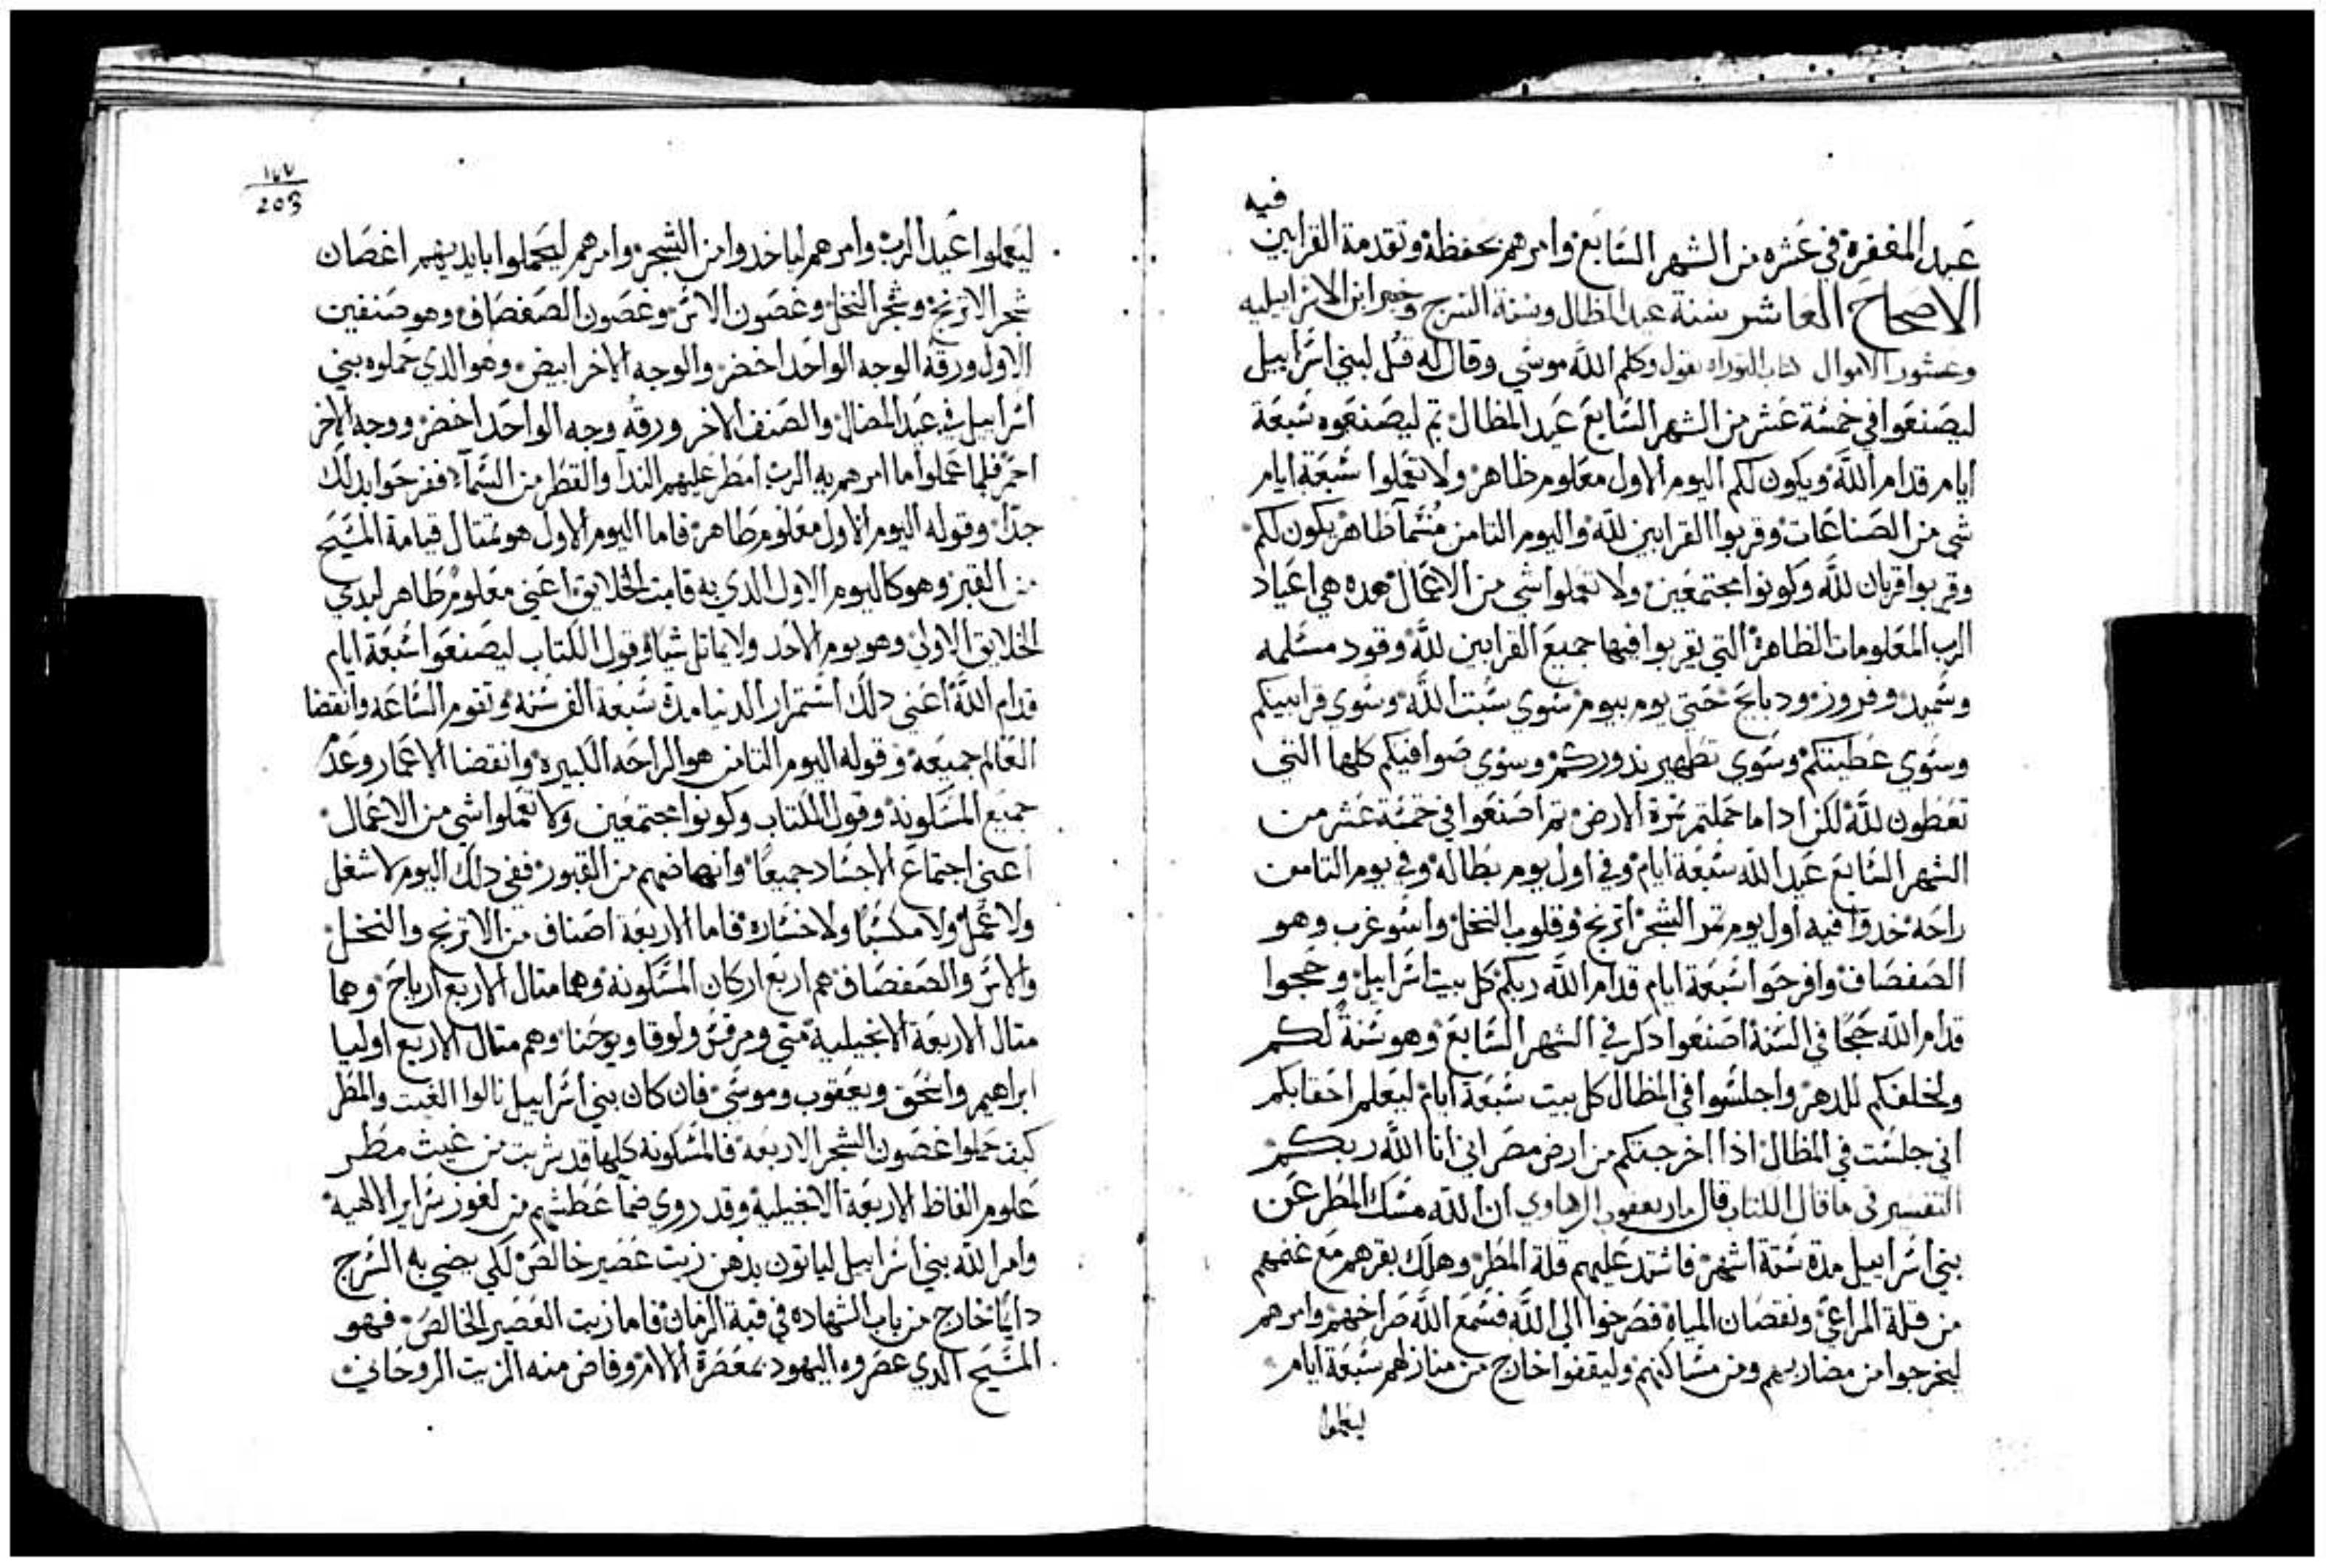 فيه
عيد المغفرة في عشره من الشهر السابع وامرهم بحفظة وتقدمة القرابين
الاصحاح العاشر سنة عيد المظال وسنة السرج وخبر ابن الاسراييليه
وعشور الاموال كتاب التوراه يقول وكلم الله موسي وقال له قل لبني اسراييل
ليصنعوا في خمسة عشر من الشهر السابع عيد المظال تم ليصنعوه سبعة
ايام قدام الله ويكون لكم اليوم الاول معلوم طاهر ولا تعملوا سبعة ايام
شي من الصناعات وقربوا القرابين لله واليوم التامن مسما طاهر يكون لكم
وقربوا قربان لله وكونوا مجتمعين ولا تعملوا شي من الاعمال هده هي اعياد
الرب المعلومات الطاهرة التي يقربوا فيها جميع القرابين لله وقود مسلمه
وسميد وفروز ودبايح حتي يوم بيوم سوي سبت الله وسوي قرابينكم
وسوي عطيتكم وسوي تطهير ندوركم وسوي صوافيكم كلها التي
تعطون لله لكن ادا ما حملتم ثمرة الارض تم اصنعوا في خمسة عشر من
الشهر السابع عيد الله سبعة ايام وفي اول يوم بطاله وفي يوم التامن
راحه خدوا فيه اول يوم تمر الشجر اترنج وقلوب النخل واس وغرب وهو
الصفصاف وافرحوا سبعة ايام قدام الله ربكم كل بيت اسراييل وحجوا
قدام الله حجا في السنة اصنعوا دلك في الشهر السابع وهو سنة لكم
ولخلفكم للدهر واجلسوا في المظال كل بيت سبعة ايام ليعلم احقابكم
اني جلست في المظال اذا اخرجتكم من ارض مصر اني انا الله ربكم
التفسير في ما قال الكتاب قال مار يعقوب الرهاوي ان الله مسك المطر عن
بني اسراييل مدة ستة اشهر فاشتد عليهم قلة المطر وهلك بقرهم مع غنمهم
من قلة المراعي ونقصان المياه فصرخوا الي الله فسمع الله صراخهم وامرهم
ليخرجوا من مضاربهم ومن مساكنهم وليقفوا خارج من منازلهم سبعة ايام
ليعملوا
١٧٧
203
ليعملوا عيد الرب وامرهم لياخدوا من الشجر وامرهم ليحملوا بايديهم اغصان
شجر الاترنج وشجر النخل وغصون الاس وغصون الصفصاف وهو صنفين
الاول ورقة الوجه الواحد اخضر والوجه الاخر ابيض وهو الدي حملوه بني
اسراييل في عيد المضال والصنف الاخر ورقة وجه الواحد اخضر ووجه الاخر
احمر فلما عملوا ما امرهم به الرب امطر عليهم الندا والقطر من السمآء ففرحوا بدلك
جدا وقوله اليوم الاول معلوم طاهر فاما اليوم الاول هو تمتال قيامة المسيح
من القبر وهو كاليوم الاول الدي به قامت الخلايق اعني معلوم طاهر لبدي
الخلايق الاولي وهو يوم الاحد ولا يماتل شيا وقول الكتاب ليصنعوا سبعة ايام
قدام الله اعني دلك استمرار الدنيا مدة سبعة الف سنه وتقوم الساعه وانقضا
العالم جميعه وقوله اليوم التامن هو الراحه الكبيره وانقضا الاعمار وعدم
جميع المسكونه وقول الكتاب وكونوا مجتمعين ولا تعملوا شي من الاعمال
اعني اجتماع الاجساد جميعا وانهاضهم من القبور ففي دلك اليوم لا شغل
ولا عمل ولا مكسبا ولا خساره فاما الاربعة اصناف من الاترنج والنخل
والاس والصفصاف هم اربع اركان المسكونه وهما متال الاربع ارياح وهما
متال الاربعة الانجيلية متي ومرقس ولوقا ويوحنا وهم متال الاربع اوليا
ابراهيم واسحق ويعقوب وموسي فان كان بني اسراييل نالوا الغيت والمطر
كيف حملوا غصون الشجر الاربعه فالمسكونه كلها قد شربت من غيث مطر
علوم الفاظ الاربعة الانجيلية وقد روي ضمآ عطشهم من لغوز سراير الالهية
وامر الله بني اسراييل لياتون بدهن زيت عصير خالص لكي يضي به السرج
دايما خارج من باب الشهاده في قبة الزمان فاما زيت العصير الخالص فهو
المسيح الدي عصروه اليهود بمعصرة الالام وفاض منه الزيت الروحاني